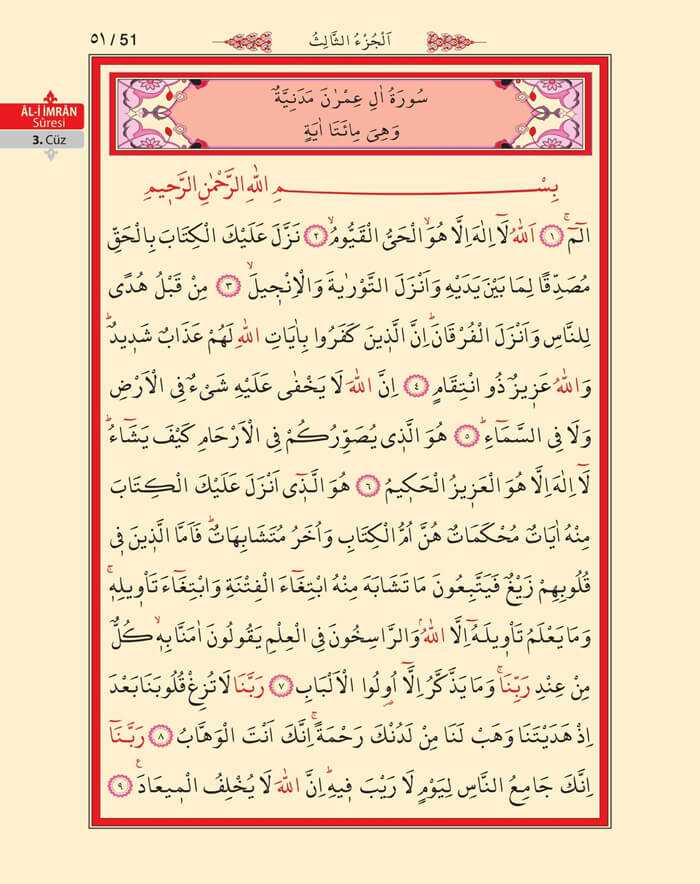 ٥١ / 51
اَلْجُزْءُ الثَّالِثُ
ÂL-İ İMRÂN
Sûresi
3. Cüz
سُورَةُ اٰلِ عِمْرٰنَ مَدَنِيَّةٌ
وَهِيَ مِائَتَا اٰيَةٍ
بِسْمِ اللّٰهِ الرَّحْمٰنِ الرَّح۪يمِ
الٓمٓۚ ﴿١﴾ اَللّٰهُ لَٓا اِلٰهَ اِلَّا هُوَۙ الْحَيُّ الْقَيُّومُۙ ﴿٢﴾ نَزَّلَ عَلَيْكَ الْكِتَابَ بِالْحَقِّ
مُصَدِّقًا لِمَا بَيْنَ يَدَيْهِ وَاَنْزَلَ التَّوْرٰيةَ وَالْاِنْج۪يلَۙ ﴿٣﴾ مِنْ قَبْلُ هُدًى
لِلنَّاسِ وَاَنْزَلَ الْفُرْقَانَۜ اِنَّ الَّذ۪ينَ كَفَرُوا بِاٰيَاتِ اللّٰهِ لَهُمْ عَذَابٌ شَد۪يدٌۜ
وَاللّٰهُ عَز۪يزٌ ذُو انْتِقَامٍ ﴿٤﴾ اِنَّ اللّٰهَ لَا يَخْفٰى عَلَيْهِ شَيْءٌ فِي الْاَرْضِ
وَلَا فِي السَّمَٓاءِۜ ﴿٥﴾ هُوَ الَّذ۪ي يُصَوِّرُكُمْ فِي الْاَرْحَامِ كَيْفَ يَشَٓاءُۜ
لَٓا اِلٰهَ اِلَّا هُوَ الْعَز۪يزُ الْحَك۪يمُ ﴿٦﴾ هُوَ الَّذ۪ٓي اَنْزَلَ عَلَيْكَ الْكِتَابَ
مِنْهُ اٰيَاتٌ مُحْكَمَاتٌ هُنَّ اُمُّ الْكِتَابِ وَاُخَرُ مُتَشَابِهَاتٌۜ فَاَمَّا الَّذ۪ينَ ف۪ي
قُلُوبِهِمْ زَيْغٌ فَيَتَّبِعُونَ مَا تَشَابَهَ مِنْهُ ابْتِغَٓاءَ الْفِتْنَةِ وَابْتِغَٓاءَ تَأْو۪يلِه۪ۚ
وَمَا يَعْلَمُ تَأْو۪يلَهُٓ اِلَّا اللّٰهُۢ وَالرَّاسِخُونَ فِي الْعِلْمِ يَقُولُونَ اٰمَنَّا بِه۪ۙ كُلٌّ
مِنْ عِنْدِ رَبِّنَاۚ وَمَا يَذَّكَّرُ اِلَّٓا اُو۬لُوا الْاَلْبَابِ ﴿٧﴾ رَبَّنَا لَا تُزِغْ قُلُوبَنَا بَعْدَ
اِذْ هَدَيْتَنَا وَهَبْ لَنَا مِنْ لَدُنْكَ رَحْمَةًۚ اِنَّكَ اَنْتَ الْوَهَّابُ ﴿٨﴾ رَبَّنَٓا
اِنَّكَ جَامِعُ النَّاسِ لِيَوْمٍ لَا رَيْبَ ف۪يهِۜ اِنَّ اللّٰهَ لَا يُخْلِفُ الْم۪يعَادَ۟ ﴿٩﴾